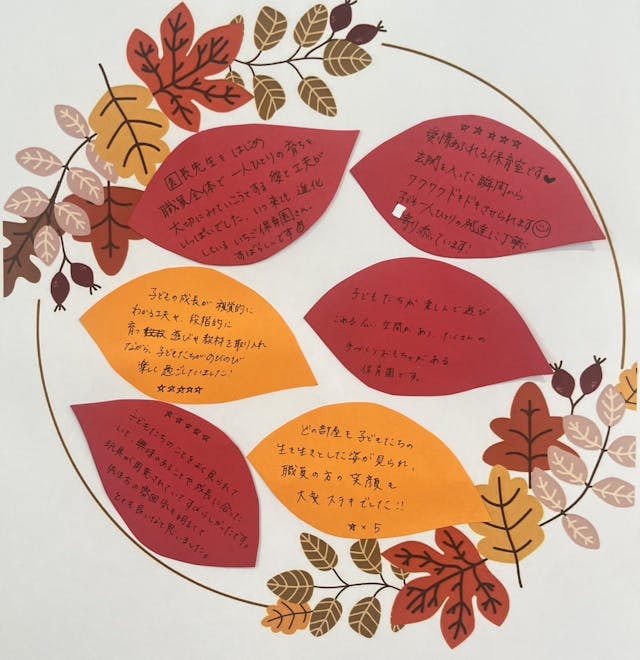 園長先生をはじめ
職員全体で一人ひとりの育ちを
大切にみていこうとする姿と工夫が
いっぱいでした。いつ来ても進化
しているいちご保育園さん。
すばらしいです
☆☆☆☆☆
愛情あふれる保育室です♥
玄関を入った瞬間から
ワクワクドキドキさせられます☺
子ども一人ひとりの発達に丁寧に
寄り添っています!
子どもの成長が視覚的に
わかる工夫や、段階的に
育つ 遊びや教材を取り入れ
ながら、子どもたちがのびのび
楽しく過ごしていました!
☆☆☆☆☆
子どもたちが楽しんで遊び
こめる広い空間があり、たくさんの
手づくりおもちゃがある
保育園です。
☆☆☆☆☆
子どもたちのことをよく見られて
いて、興味のあることや成長に合った
玩具が用意されていてすばらしかったです。
先生方の雰囲気も明るくて
とても良いなと思いました。
どの部屋も子どもたちの
生き生きとした姿が見られ、
職員の方の笑顔も
大変ステキでした!!
☆×5